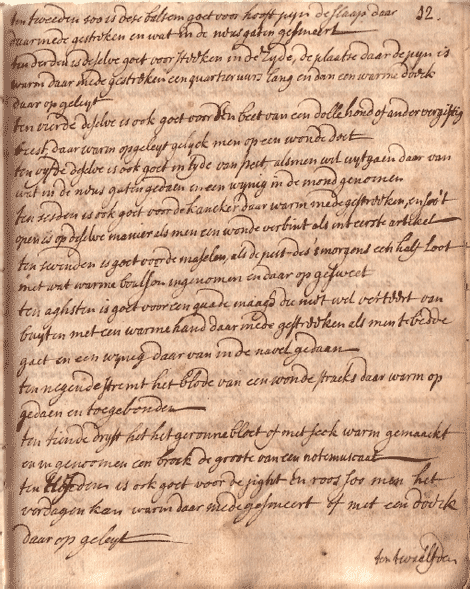 32.
ten tweeden soo is dese balsem goet voor hooft pijn de slaaps daar
daarmede gestreken en wat in de neusgaten gesmeert
ten derden is deselve goet voor steeken in de zyde, de plaatse daar de pijn is
warm daar mede gestreeken een quartier uurs lang en dan een warme doeck
daar op geleyt
ten vierde deselve is ook goet voor den beet van een dolle hond of ander vergiftig
beest daar warm opgeleyt gelyck men op een wonde doet
ten vyfde deselve is ook goet in tyde van pest alsmen wil uytgaen daar van
wat in de neus gaten gedaen en een wynig in de mond genomen
ten sesden is ook goet voor de kancker daar warm mede gestreeken, en soo't
open is op deselve manier als men een wonde verbint als int eerste artikel
ten sevenden is goet voor de maselen, als de pest des smorgens een half Loot
met wat warme boulson ingenomen en daar op gesweet
ten aghsten is goet voor een quade maagh die niet wel verteert van
buyten met een warme hand daar mede gestreeken als men te bedde
gaet en een wynig daar van in de navel gedaan
ten negende stremt het bloed van een wonde stracks daar warm op
gedaen en toegebonden
ten tiende dryft het het geronne bloet of met seck warm gemaackt
en in genoomen een brock de groote van een notemuscaat
ten elfden is ook goet voor de jight en roos soo men het
verdagen kan warm daar mede gesmeert of met een doeck
daar op geleyt
ten twaalfden